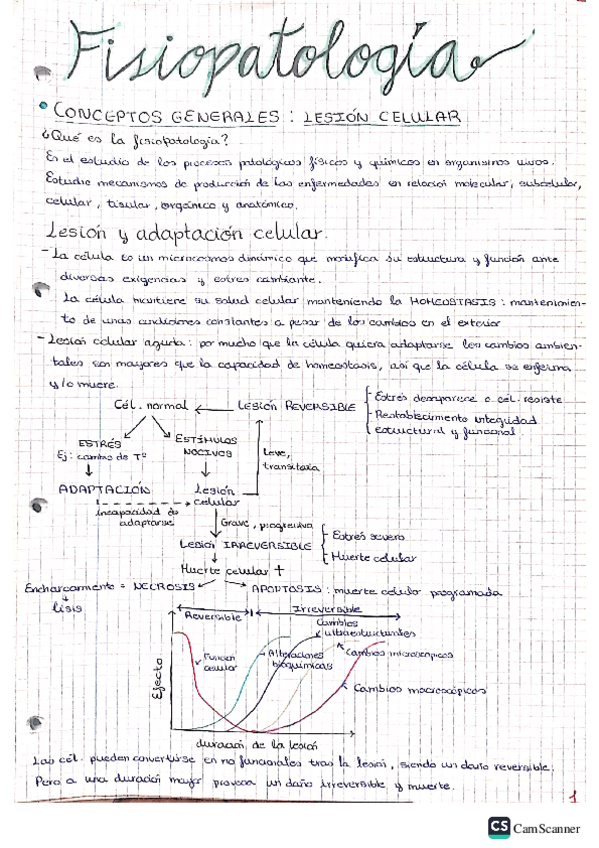 Fisiopatología
• CONCEPTOS GENERALES : LESIÓN CELULAR
¿Qué es la fisiopatología?
Es el estudio de los procesos patológicos físicos y químicos en organismos vivos.
Estudia mecanismos de producción de las enfermedades en relación molecular, subcelular,
celular, tisular, orgánico y anatómico.
Lesión y adaptación celular.
- La célula es un microcosmos dinámico que modifica su estructura y función ante
diversas exigencias y estrés cambiante.
La célula mantiene su salud celular manteniendo la HOMEOSTASIS : mantenimien-
to de unas condiciones constantes a pesar de los cambios en el exterior
- Lesión celular aguda: por mucho que la célula quiera adaptarse los cambios ambien-
tales son mayores que la capacidad de homeostasis, así que la célula se enferma
y/o muere.
Cél. normal ← LESIÓN REVERSIBLE
- Estrés desaparece o cél. resiste
- Restablecimiento integridad
estructural y funcional
ESTRÉS
Ej: cambio de Tª
ESTÍMULOS
NOCIVOS
Leve,
transitoria
ADAPTACIÓN
Lesión
celular
Incapacidad de
adaptarse
Grave, progresiva
Lesión IRREVERSIBLE
- Estrés severo
- Muerte celular
Muerte celular +
Encharcamiento = NECROSIS
↓
lisis
APOPTOSIS : muerte celular programada
Reversible
Irreversible
Efecto
Función
celular
Alteraciones
bioquímicas
Cambios
ultraestructurales
Cambios microscópicos
Cambios macroscópicos
duración de la lesión
Las cél. pueden convertirse en no funcionales tras la lesión, siendo un daño reversible.
Pero a una duración mayor provoca un daño irreversible y muerte.
1
CS CamScanner